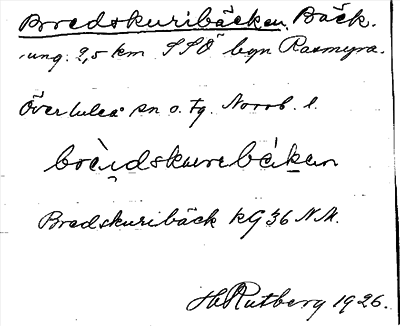 Bredskuribäcken. Bäck.
ung. 2,5 km SSÖ bgn Rasmyra.
Överluleå sn o. tg. Norrb. l.
Bredskuribäck kG 36 N.M.
H Rutberg 1926.